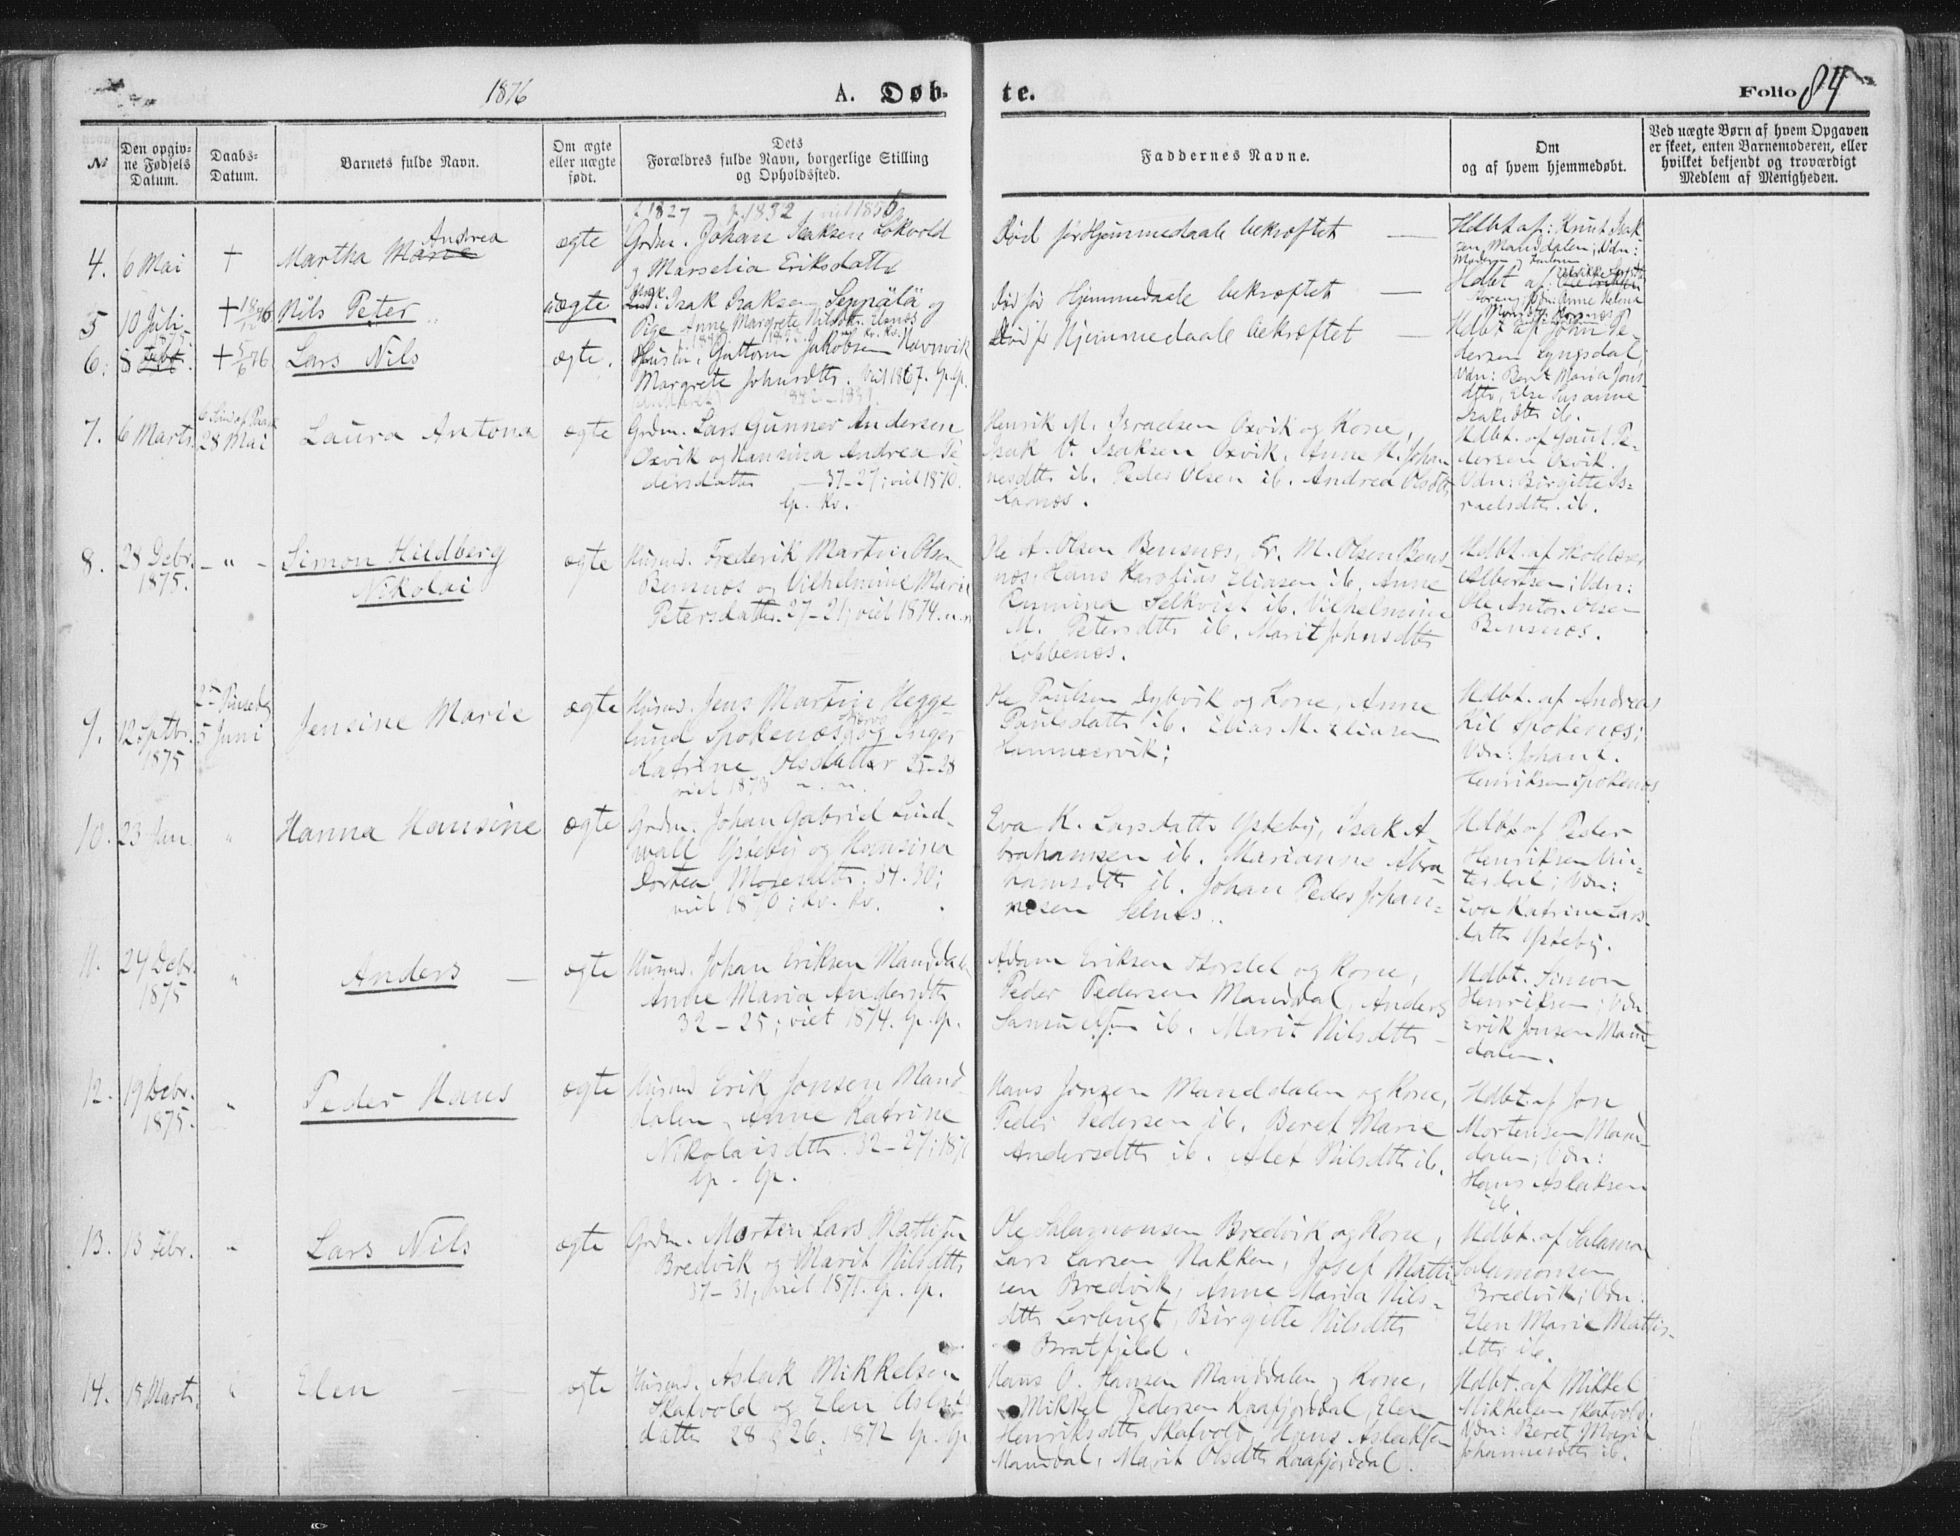 1876
A. Døb-
te.
Folio 84
№
Den opgiv-
ne Fødsels
Datum.
Daabs-
Datum.
Barnets fulde Navn.
Om ægte
eller uægte
født.
Dets
Forældres fulde Navn, borgerlige Stilling
og Opholdssted.
Faddernes Navne.
Om
og af hvem hjemmedøbt.
Ved uægte Børn af hvem Opgaven
er skeet, enten Barnemoderen, eller
hvilket bekjendt og troværdigt
Medlem af Menigheden.
4.
6 Mai
+
Andrea
Martha Marie
ægte
f. 1827 f. 1832 viet 1856
Grdm. Johan Isaksen Løkvold
og Marselia Eriksdatt
Død før Hjemmedaab bekræftet —
Hdbt af: Knut Isak-
sen, Manddalen; Vdn:
5
10 Juli
+
Nils Peter
uægte
Isak Isaksen Seppälä og
Pige Anne Margrete Nilsdtr.
Død før Hjemmedaab bekræftet —
Hdbt af:
Anne Helene
6.
8
+ 5/6 76
Lars Nils
ægte.
Guttorm Jakobsen Navnvik
Margrete Johnsdttr. viet 1867. lp. lp.
Død før Hjemmedaab bekræftet —
Hdbt af John Pe-
dersen Lyngsdal;
Vdn: Beret Maria Jons
dttr, Else Susanne
Isaksdttr ib.
7.
6 Marts
28 Mai
Laura Antona
ægte
Grdm. Lars Gunner Andersen
Oxvik og Hansina Andrea Pe
dersdatter — 37–27; viet 1870.
lp. kv.
Henrik M. Israelsen Oxvik og Kone,
Isak V. Isaksen Oxvik, Anne M. Johan
nesdttr ib. Peder Olsen ib. Andrea Olsdttr
Hdbt. af Paul Pe-
dersen Oxvik.
Vdn: Birgitte Is-
raelsdttr. ib.
8.
28 Debr.
1875.
– " –
Simon Hildberg
Nikolai
ægte
Husmd. Frederik Martin Olsen
Bensnæs og Vilhelmine Marie
Petersdatter. 27–21; viet 1874. n. n
Ole A. Olsen Bensnæs, Fr. M. Olsen Bens
næs, Hans Karolius Eliasen ib. Anne
Selkvist ib. Vilhelmine
M. Petersdttr ib. Marit Johnsdttr
Kobbenæs.
Hdbt. af Skolelærer
Albertsen; Vdn:
Ole Anton Olsen
Bensnæs.
9.
12 Sptbr.
1875
5 Juni
Jensine Marie
ægte
Husmd. Jens Martin Hegge
lund Spokenæs og Inger
Katrine Olsdatter 25–28
viet 1873 n. n.
Ole Paulsen Dybvik og Kone, Anne
Paulsdattr ib. Elias M. Eliasen
Hdbt. af Andreas
Kil Spokenæs;
Vdn: Johan E.
Henriksen Spokenæs
10.
23 Jan
"
Hanna Hansine
ægte
Grdm. Johan Gabriel Lind-
wall Ysteby og Hansina
Dortea Mosesdttr. 34. 30;
viet 1870; kv. kv.
Eva K. Larsdattr Ysteby, Isak A-
brahamsen ib. Marianne Abra
hamsdttr ib. Johan Peder Johan-
nesen Selnes.
Hdbt af Peder
Henriksen Min-
terdal; Vdn:
Eva Katrine Lars
dattr Ysteby.
11.
24 Debr.
1875
"
Anders —
ægte
Husmd. Johan Eriksen Manddal
Anne Maria Andersdttr
32–25; viet 1874. lp. lp.
Adam Eriksen Storslet og Kone,
Peder Pedersen Manddal, Anders
Samuelsen ib. Marit Nilsdttr –
Hdbt. Simon
Henriksen; Vdn
Erik Jonsen Mand-
dalen.
12.
19 Debr.
1875.
"
Peder Hans
ægte
Husmd Erik Jonsen Mand
dalen, Anne Katrine
Nikolaisdttr. 32–27; 187
lp. lp.
Hans Jonsen Manddalen og Kone,
Peder Pedersen ib. Beret Marie
Andersdttr ib. Alet Nilsdttr ib.
Hdbt. af Jon
Mortensen Mand-
dalen; Vdn:
Hans Aslaksen
ib.
13.
13 Febr.
"
Lars Nils
ægte
Grdm. Morten Lars Mattisen
Bredvik og Marit Nilsdttr
37–31, viet 1871. lp. lp.
Ole Salamonsen Bredvik og Kone,
Lars Larsen Nakken, Josef Matti
sen Bredvik, Anne Maria Nils-
dttr Lerbugt, Birgitte Nilsdttr
Bratfjeld.
Hdbt. af Salamon
Salamonsen
Bredvik; Vdn:
Elen Marie Mattis-
dttr ib.
14.
15 Marts.
"
Elen —
ægte
Husmd. Aslak Mikkelsen
Skatvold og Elen Aslaks
datter 28 26; 1872 lp. lp
Hans O. Hansen Manddalen og Kone,
Mikkel Pedersen Kaafjorddal, Elen
Henriksdttr Skatvold, Hans Aslaksen
Manddal, Marit Olsdttr Kaafjorddal.
Hdbt. af Mikkel
Mikkelsen Skatvold;
Vdn: Beret Maria
Johannesdttr ib.